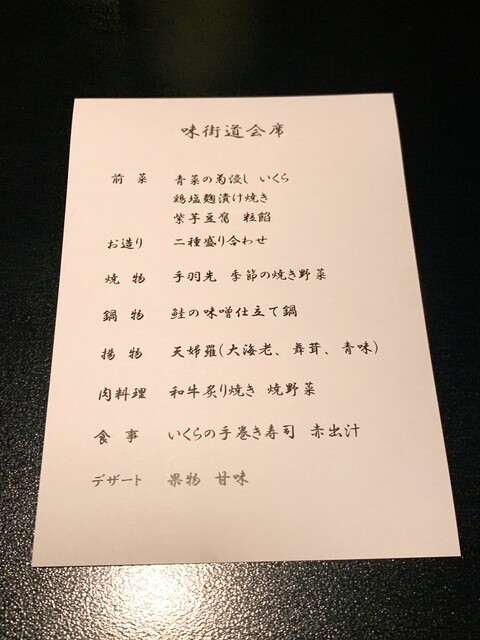 味街道会席
前菜 青菜の菊浸し いくら
鶏塩麹漬け焼き
紫芋豆腐 粒餡
お造り 二種盛り合わせ
焼物 手羽先 季節の焼き野菜
鍋物 鮭の味噌仕立て鍋
揚物 天婦羅(大海老、舞茸、青味)
肉料理 和牛炙り焼き 焼野菜
食事 いくらの手巻き寿司 赤出汁
デザート 果物 甘味